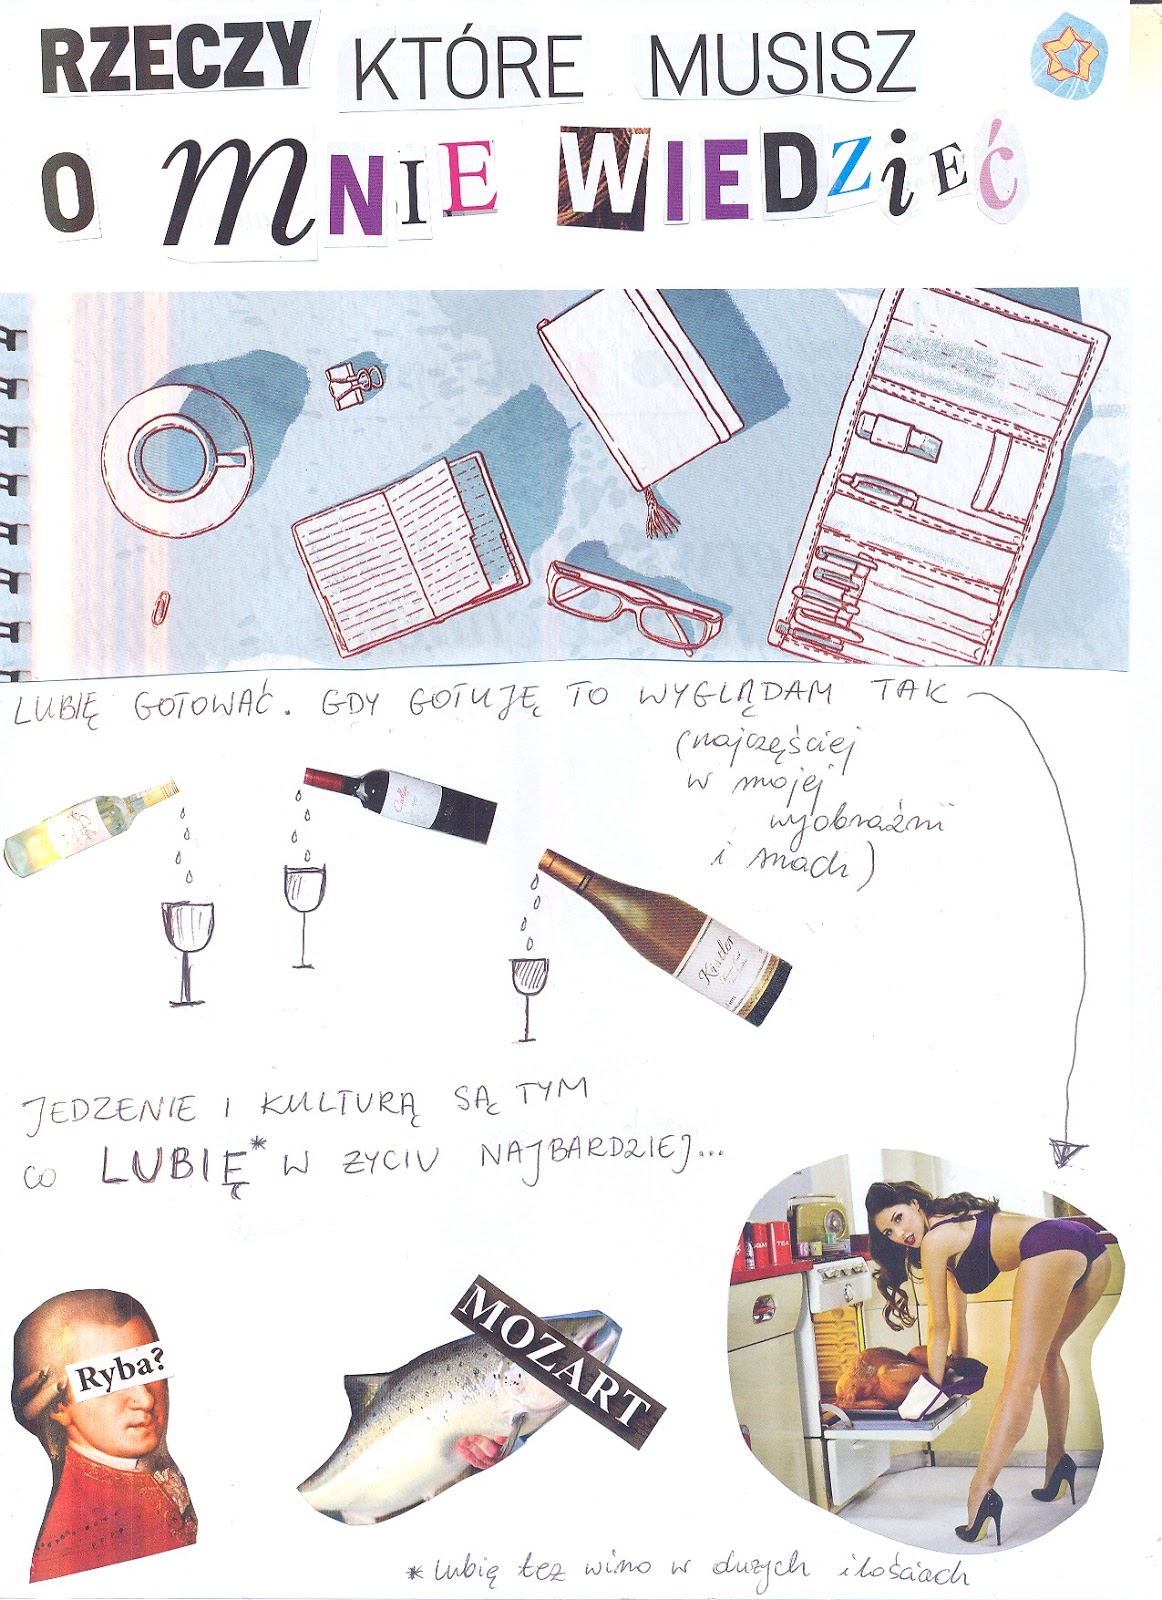 RZECZY KTÓRE MUSISZ
O MNIE WIEDZiEĆ
LUBIĘ GOTOWAĆ. GDY GOTUJĘ TO WYGLĄDAM TAK
(najczęściej
w mojej
wyobraźni
i snach)
Kessler
JEDZENIE I KULTURĄ SĄ TYM
CO LUBIĘ* W ŻYCIU NAJBARDZIEJ...
TEA
Ryba?
MOZART
*lubię też wino w dużych ilościach